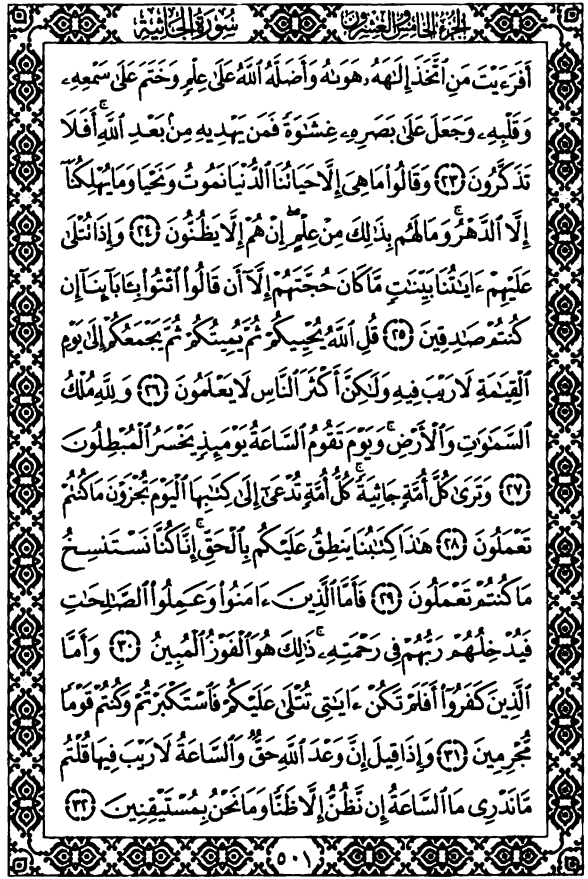 سُورَةُ الجَاثِيَةِ الجُزْءُ الخَامِسُ وَالعِشْرُونَ
أَفَرَءَيْتَ مَنِ ٱتَّخَذَ إِلَٰهَهُۥ هَوَىٰهُ وَأَضَلَّهُ ٱللَّهُ عَلَىٰ عِلْمٍ وَخَتَمَ عَلَىٰ سَمْعِهِۦ
وَقَلْبِهِۦ وَجَعَلَ عَلَىٰ بَصَرِهِۦ غِشَٰوَةً فَمَن يَهْدِيهِ مِنۢ بَعْدِ ٱللَّهِ ۚ أَفَلَا
تَذَكَّرُونَ ٢٣ وَقَالُوا۟ مَا هِىَ إِلَّا حَيَاتُنَا ٱلدُّنْيَا نَمُوتُ وَنَحْيَا وَمَا يُهْلِكُنَآ
إِلَّا ٱلدَّهْرُ ۚ وَمَا لَهُم بِذَٰلِكَ مِنْ عِلْمٍ ۖ إِنْ هُمْ إِلَّا يَظُنُّونَ ٢٤ وَإِذَا تُتْلَىٰ
عَلَيْهِمْ ءَايَٰتُنَا بَيِّنَٰتٍ مَّا كَانَ حُجَّتَهُمْ إِلَّآ أَن قَالُوا۟ ٱئْتُوا۟ بِـَٔابَآئِنَآ إِن
كُنتُمْ صَٰدِقِينَ ٢٥ قُلِ ٱللَّهُ يُحْيِيكُمْ ثُمَّ يُمِيتُكُمْ ثُمَّ يَجْمَعُكُمْ إِلَىٰ يَوْمِ
ٱلْقِيَٰمَةِ لَا رَيْبَ فِيهِ وَلَٰكِنَّ أَكْثَرَ ٱلنَّاسِ لَا يَعْلَمُونَ ٢٦ وَلِلَّهِ مُلْكُ
ٱلسَّمَٰوَٰتِ وَٱلْأَرْضِ ۚ وَيَوْمَ تَقُومُ ٱلسَّاعَةُ يَوْمَئِذٍ يَخْسَرُ ٱلْمُبْطِلُونَ
٢٧ وَتَرَىٰ كُلَّ أُمَّةٍ جَاثِيَةً ۚ كُلُّ أُمَّةٍ تُدْعَىٰٓ إِلَىٰ كِتَٰبِهَا ٱلْيَوْمَ تُجْزَوْنَ مَا كُنتُمْ
تَعْمَلُونَ ٢٨ هَٰذَا كِتَٰبُنَا يَنطِقُ عَلَيْكُم بِٱلْحَقِّ ۚ إِنَّا كُنَّا نَسْتَنسِخُ
مَا كُنتُمْ تَعْمَلُونَ ٢٩ فَأَمَّا ٱلَّذِينَ ءَامَنُوا۟ وَعَمِلُوا۟ ٱلصَّٰلِحَٰتِ
فَيُدْخِلُهُمْ رَبُّهُمْ فِى رَحْمَتِهِۦ ۚ ذَٰلِكَ هُوَ ٱلْفَوْزُ ٱلْمُبِينُ ٣٠ وَأَمَّا
ٱلَّذِينَ كَفَرُوٓا۟ أَفَلَمْ تَكُنْ ءَايَٰتِى تُتْلَىٰ عَلَيْكُمْ فَٱسْتَكْبَرْتُمْ وَكُنتُمْ قَوْمًا
مُّجْرِمِينَ ٣١ وَإِذَا قِيلَ إِنَّ وَعْدَ ٱللَّهِ حَقٌّ وَٱلسَّاعَةُ لَا رَيْبَ فِيهَا قُلْتُم
مَّا نَدْرِى مَا ٱلسَّاعَةُ إِن نَّظُنُّ إِلَّا ظَنًّا وَمَا نَحْنُ بِمُسْتَيْقِنِينَ ٣٢
٥٠١